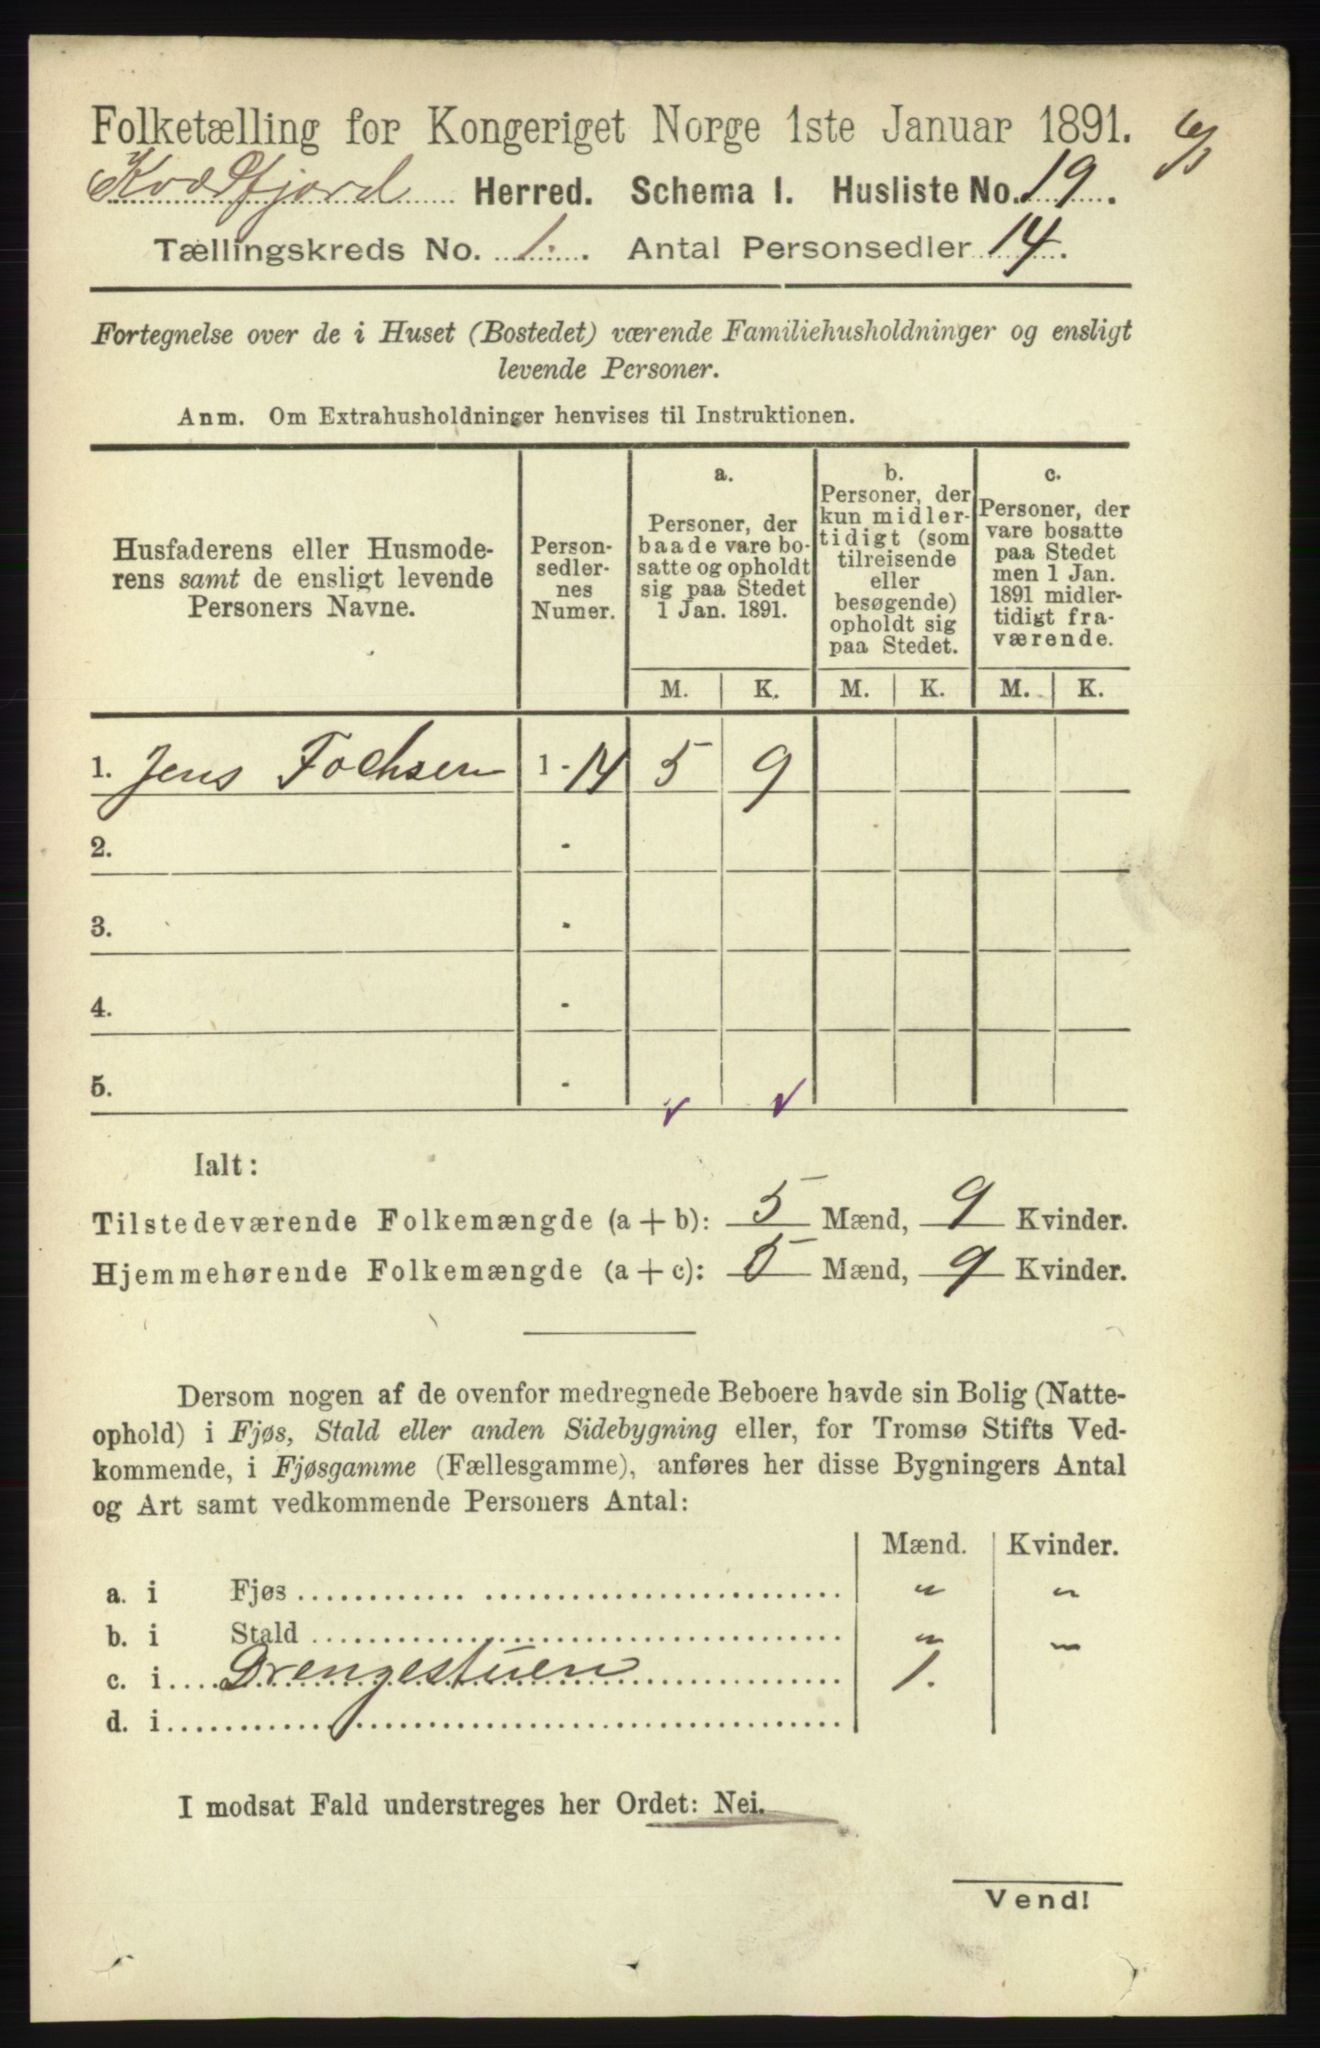 Folketælling for Kongeriget Norge 1ste Januar 1891.
Kvædfjord Herred. Schema I. Husliste No. 19.
Tællingskreds No. 1. Antal Personsedler 14.
Fortegnelse over de i Huset (Bostedet) værende Familiehusholdninger og ensligt
levende Personer.
Anm. Om Extrahusholdninger henvises til Instruktionen.
Husfaderens eller Husmode-
rens samt de ensligt levende
Personers Navne.
Person-
sedler-
nes
Numer.
a.
Personer, der
baade vare bo-
satte og opholdt
sig paa Stedet
1 Jan. 1891.
b.
Personer, der
kun midler-
tidigt (som
tilreisende
eller
besøgende)
opholdt sig
paa Stedet.
c.
Personer, der
vare bosatte
paa Stedet
men 1 Jan.
1891 midler-
tidigt fra-
værende.
M. K. M. K. M. K.
1. Jens Fochsen 1-14 5 9
2. -
3. -
4. -
5. -
Ialt:
Tilstedeværende Folkemængde (a + b): 5 Mænd, 9 Kvinder.
Hjemmehørende Folkemængde (a + c): 5 Mænd, 9 Kvinder.
Dersom nogen af de ovenfor medregnede Beboere havde sin Bolig (Natte-
ophold) i Fjøs, Stald eller anden Sidebygning eller, for Tromsø Stifts Ved-
kommende, i Fjøsgamme (Fællesgamme), anføres her disse Bygningers Antal
og Art samt vedkommende Personers Antal:
Mænd. Kvinder.
a. i Fjøs " "
b. i Stald " "
c. i Drengestuen 1.
d. i
I modsat Fald understreges her Ordet: Nei.
Vend!